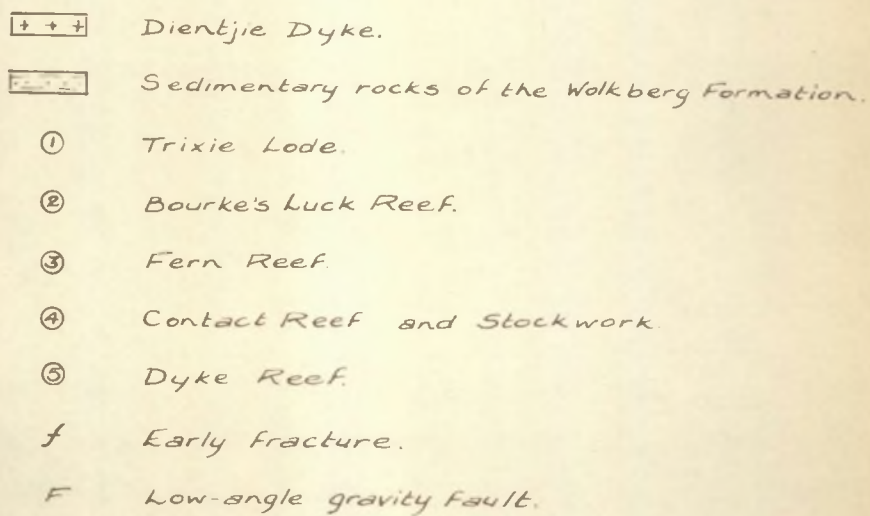 + + + Dientjie Dyke.
Sedimentary rocks of the Wolkberg Formation.
① Trixie Lode.
② Bourke's Luck Reef.
③ Fern Reef.
④ Contact Reef and Stockwork.
⑤ Dyke Reef.
f Early fracture.
F Low-angle gravity Fault.